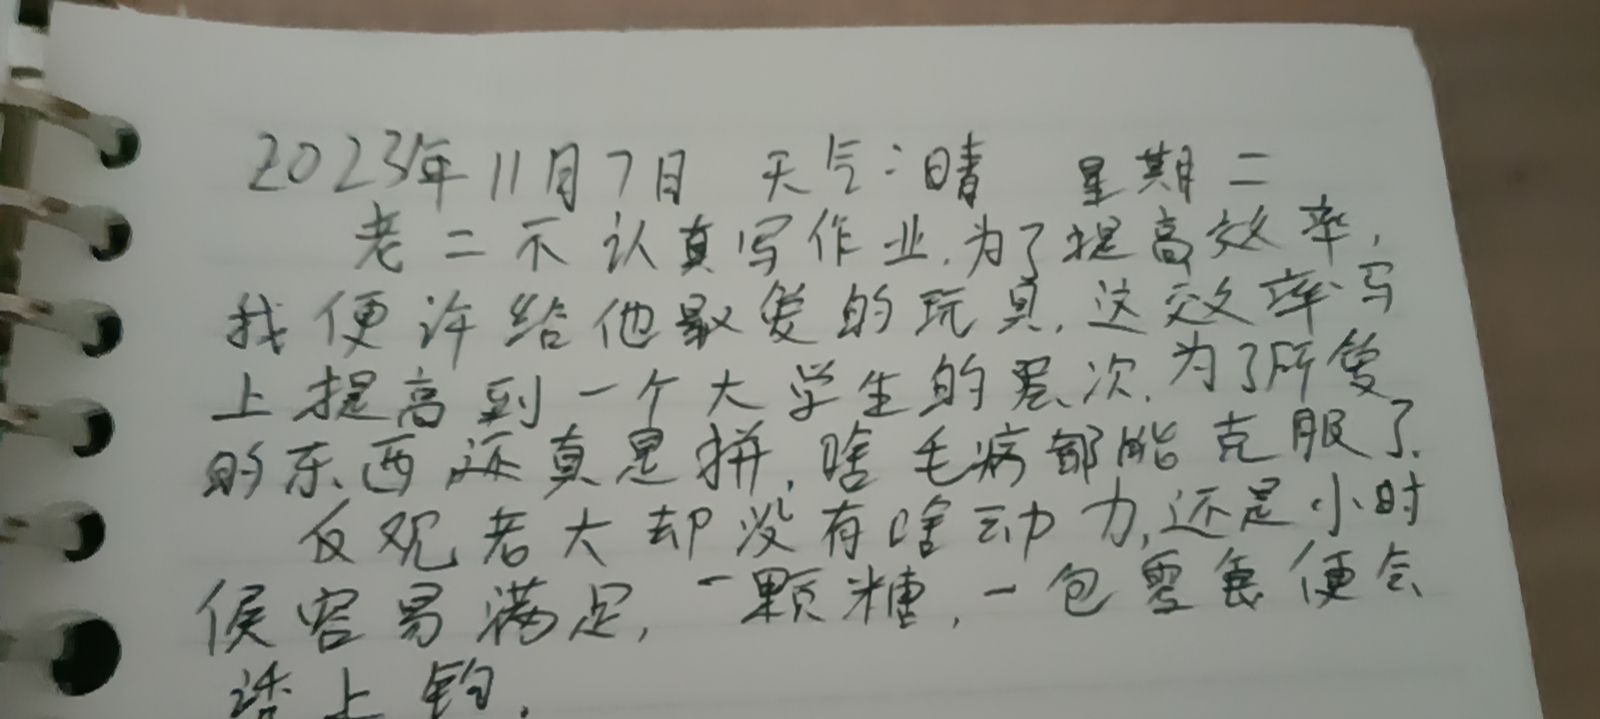 2023年11月7日 天气:晴 星期二
老二不认真写作业.为了提高效率,
我便许给他最爱的玩具.这效率写
上提高到一个大学生的层次.为了所爱
的东西还真是拼.啥毛病都能克服了.
反观老大却没有啥动力,还是小时
候容易满足,一颗糖,一包零食便会
诱上钩.